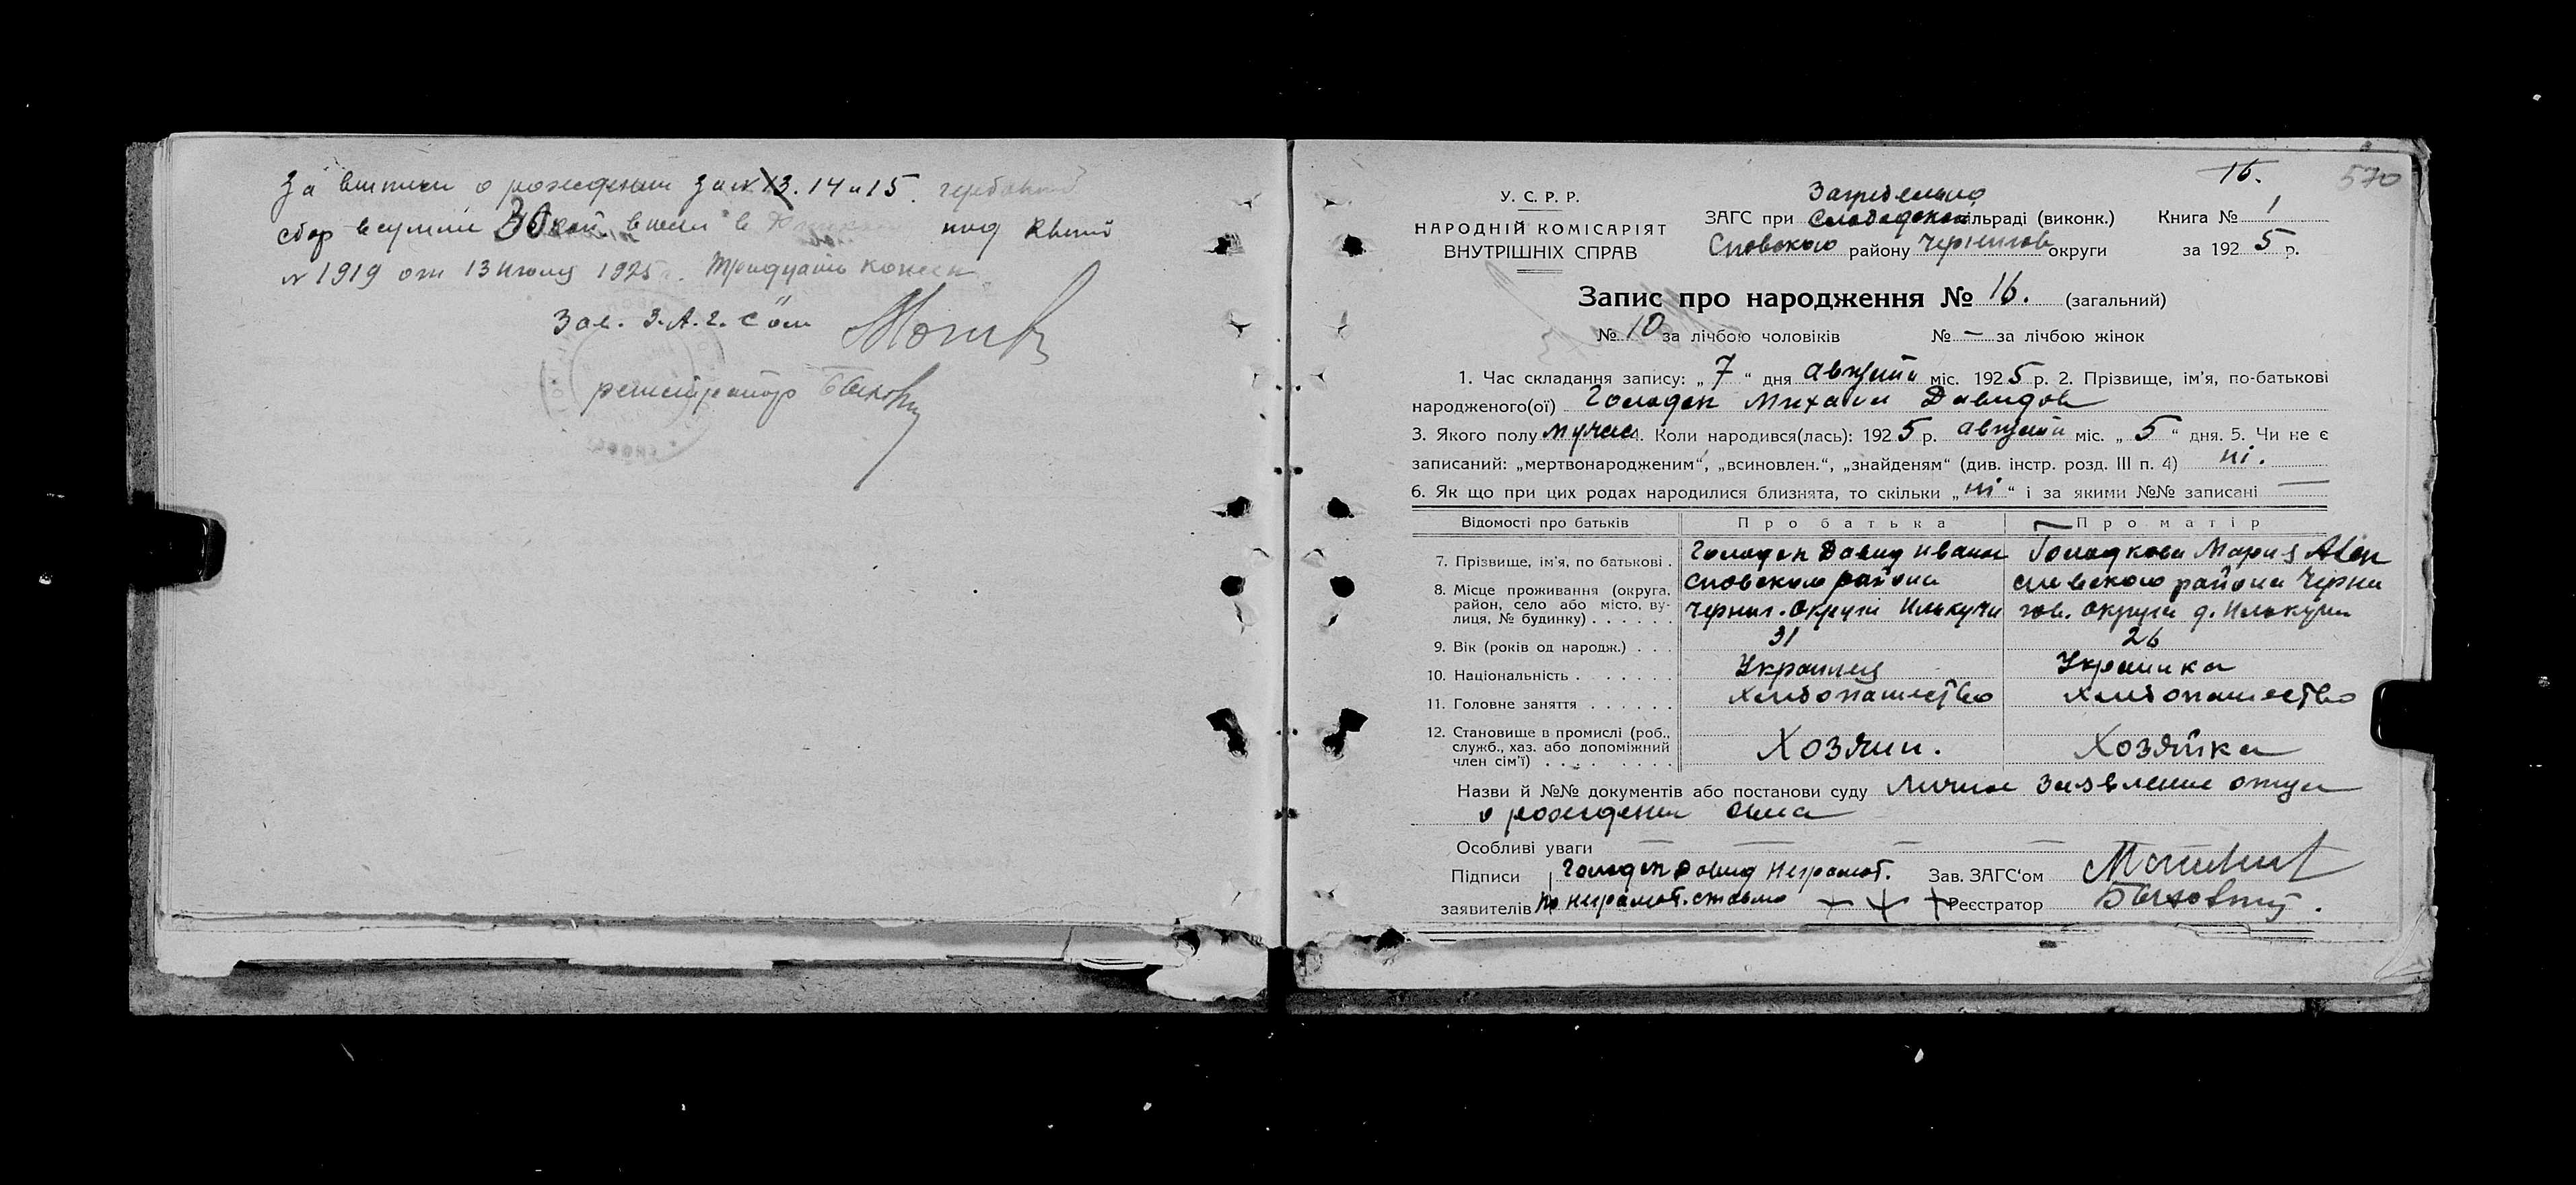 За выписи о рождении за № 13. 14 и 15. гербовый
сбор в сумме 30 коп. внесен в под квит
№ 1919 от 13 июля 1925 г. Тридцать копеек
Зав. З.А.Г.С'ом
регистратор
16.
570
У. С. Р. Р.
НАРОДНІЙ КОМІСАРІЯТ
ВНУТРІШНІХ СПРАВ
Загребельно
ЗАГС при Слободской сільраді (виконк.) Книга № 1
Сновского району Чернигов округи за 1925 р.
Запис про народження № 16. (загальний)
№ 10 за лічбою чоловіків № — за лічбою жінок
1. Час складання запису: „ 7 “ дня августа міс. 1925 р. 2. Прізвище, ім'я, по-батькові
народженого(ої) Голоден Михаил Давидов
3. Якого полу мужск. Коли народився(лась): 1925 р. августа міс. „ 5 “ дня. 5. Чи не є
записаний: „мертвонародженим“, „всиновлен.“, „знайденям“ (див. інстр. розд. III п. 4) ні.
6. Як що при цих родах народилися близнята, то скільки „ні“ і за якими №№ записані —
Відомості про батьків Про батька Про матір
7. Прізвище, ім'я, по батькові . Голоден Давид Иванов Голодкова Мария
8. Місце проживання (округа, район, село або місто, вулиця, № будинку) . . . . . . Сновского района Сновского района Черни
Черниг. Округи Илькучи гов. округи д. Илькучи
9. Вік (років од народж.) . . . 31 26
10. Національність . . . . . . Украинец Украинка
11. Головне заняття . . . . . . хлебопашество хлебопашество
12. Становище в промислі (роб., служб., хаз. або допоміжний член сім'ї) . . . . . . . . Хозяин. Хозяйка
Назви й №№ документів або постанови суду Личное заявление отца
о рождении сына
Особливі уваги — — — — —
Підписи Голоден Давид Неграмот. Зав. ЗАГС'ом
заявителів по неграмот. ставлю + + + Реєстратор